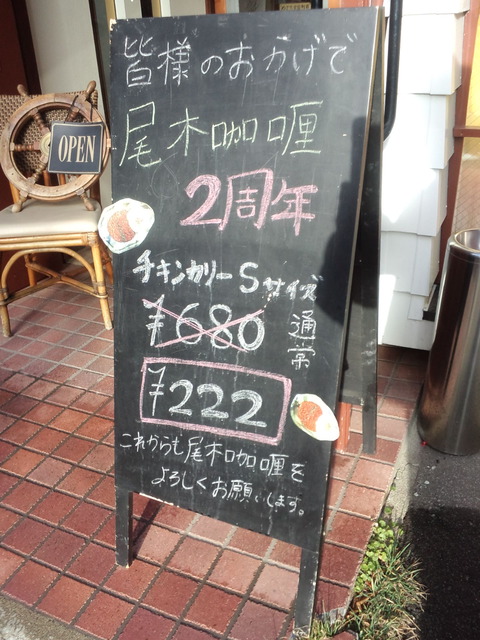 OPEN
皆様のおかげで
尾木咖喱
2周年
チキンカリーSサイズ
¥680 通常
¥222
これからも尾木咖喱を
よろしくお願いします。